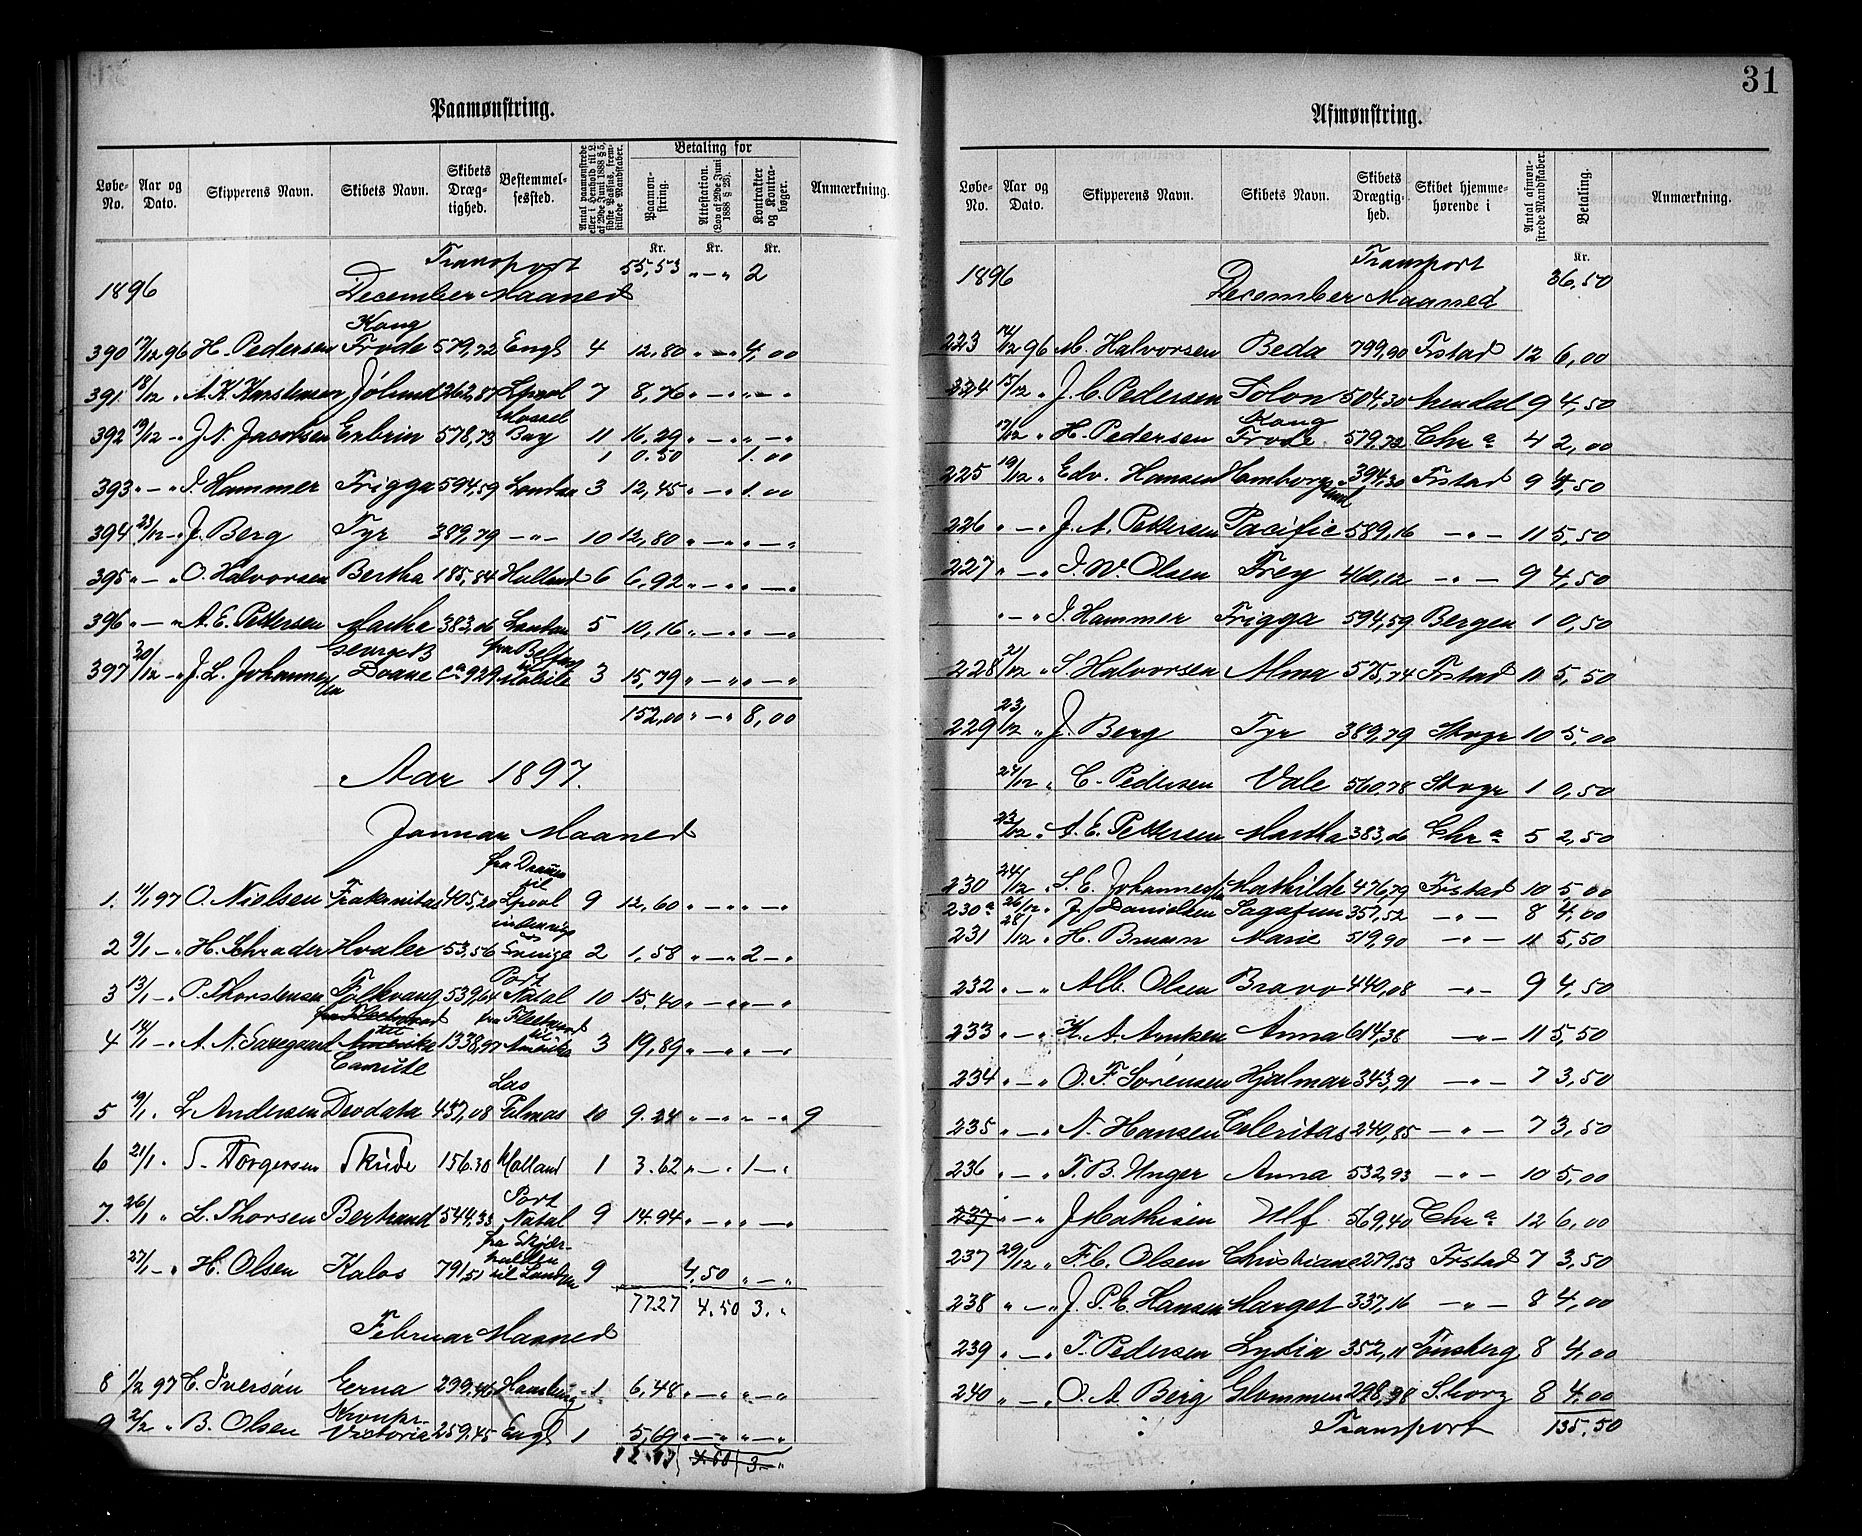 31
Paamønstring.
Løbe-No. Aar og Dato. Skipperens Navn. Skibets Navn. Skibets Dræg-tighed. Bestemmel-sessted. Antal paamønstrede eller i Henhold til L. af 29de Juni 1888 § 5, sidste Passus, frem-stillede Mandskaber. Betaling for Paamøn-string. Attestation. (Lov af 29de Juni 1888 § 23). Kontrakter og Kontra-bøger. Anmærkning.
Kr. Kr. Kr.
Transport 55,53 " — " 2
1896 December Maaned
Kong
390 17/12 96 H. Pedersen Frode 579,72 Engl 4 12,80 " — " 4,00
391 18/12 " A. K. Karstensen Jølund 262,87 Lpool 7 8,76 " — " " — "
392 19/12 — " J. N. Jacobsen Erbrin 578,73 Bay 11 16,29 " — " " — "
1 0.50 1.00
393 " — " I. Hammer Frigga 594,59 London 3 12,45 " — " 1.00
394 23/12 — " J. Berg Tyr 389,79 — " — 10 12,80 " — " " — "
395 " — " O. Halvorsen Bertha 185,84 Holland 6 6,92 " — " " — "
396 " — " A. E. Pettersen Martha 383,06 London 5 10,16 " — " " — "
George B fra Belfast til
397 20/12 — " J. L. Johannessen Doane Ca 929 Mobile 3 15,79 " — " " — "
152,00 " — " 8,00
Aar 1897.
Januar Maaned
fra Dramen til
1. 11/1 97 O. Nielsen Frakenitas 405,20 Lpool 9 12,60 " — " " — "
2 9/1 — " H. Schrader Hvaler 53,56 Sverige 2 1,58 " — " 2 — "
Port
3 13/1 — " P. Thorstensen Folkvang 539,64 Natal 10 15,40 " — " " — "
til
4 14/1 — " A. N. Saregaard Amerika 1338,97 Amerika 3 19,89 " — " " — "
Canute
Las
5 19/1 . L Andersen Deodata 437,08 Palmas 10 9.24 " — " " — " 9
6 21/1 . T. Torgersen Skude 156.30 Holland 1 3.62 " — " 1 — "
Port
7. 26/1 " L. Thorsen Bertrand 544,33 Natal 9 14.94 " — " " — "
27/1 — " H. Olsen Kalos 791,51 til London 9 4,50 " — "
77.27 4.50 3. "
Februar Maaned
8 1/2 97 C. Iversøn Erna 299,46 Hamburg 1 6,48 " — " " — "
Kronpr.
9 2/2 " B. Olsen Victoria 259,45 Engl 1 5,69 " — " " — "
12.17 4.50 3 — "
Afmønstring.
Løbe-No. Aar og Dato. Skipperens Navn. Skibets Navn. Skibets Drægtig-hed. Skibet hjemme-hørende i Antal afmøn-strede Mandskaber. Betaling. Anmærkning.
Kr.
Transport 36,50
1896 December Maaned
223 14/12 96 M. Halvorsen Beda 799,90 Frstad 12 6,00
224 15/12 " J. C. Pedersen Solon 504,30 Arendal 9 4,50
Kong
17/12 " H. Pedersen Frode 579,72 Chra 4 2,00
225 19/12 " Edv. Hansen Hamborgsund 394,30 Frstad 9 4,50
226 " — " J. A. Pettersen Pacific 589,16 — " — 11 5,50
227 " — " I. W. Olsen Frey 460,12 — " — 9 4,50
" — " I. Hammer Frigga 594,59 Bergen 1 0,50
228 21/12 " S. Halvorsen Alma 575,74 Frstad 11 5,50
229 23/12 " J. Berg Tyr 389,79 Stvgr 10 5,00
24/12 " C. Pedersen Vale 560,78 Stvgr 1 0,50
23/12 " A. E. Pettersen Martha 383,06 Chra 5 2,50
230 24/12 " S. E. Johannessen Mathilde 476,79 Frstad 10 5,00
230a 26/12 " J. Danielsen Sagatun 357,52 — " — 8 4,00
231 28/12 " H. Bruun Marie 519,90 — " — 11 5,50
232 " — " Alb. Olsen Bravo 440,08 — " — 9 4,50
233 " — " K. A. Arntsen Anna 614,38 — " — 11 5,50
234 " — " O. F. Sørensen Hjalmar 343,91 — " — 7 3,50
235 " — " N. Hansen Celeritas 240,85 — " — 7 3,50
236 " — " T. B. Unger Anna 532,93 — " — 10 5,00
237 " — " J Mathisen Ulf 569,40 Chra 12 6,00
237 29/12 " F. C. Olsen Christiane 279,53 Frstad 7 3,50
238 " — " J. P. E. Hansen Marget 337,16 — " — 8 4,00
239 " — " T. Pedersen Lydia 352,11 Tønsberg 8 4,00
240 " — " O. A. Berg Glommen 298,98 S.borg 8 4,00
Transport 135,50